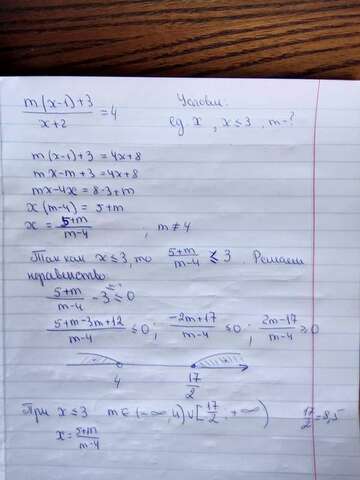 m(x-1)+3 / x+2 = 4
Условия:
ед. x, x ≤ 3. m-?
m(x-1)+3 = 4x+8
mx-m+3 = 4x+8
mx-4x = 8-3+m
x(m-4) = 5+m
x = 5+m / m-4 ; m ≠ 4
Так как x ≤ 3, то 5+m / m-4 ≤ 3. Решаем
неравенство:
5+m / m-4 - 3 ≤ 0
5+m-3m+12 / m-4 ≤ 0; -2m+17 / m-4 ≤ 0; 2m-17 / m-4 ≥ 0
4 17/2
При x ≤ 3 m ∈ (-∞, 4) ∪ [17/2; +∞) 17/2 = 8,5
x = 5+m / m-4